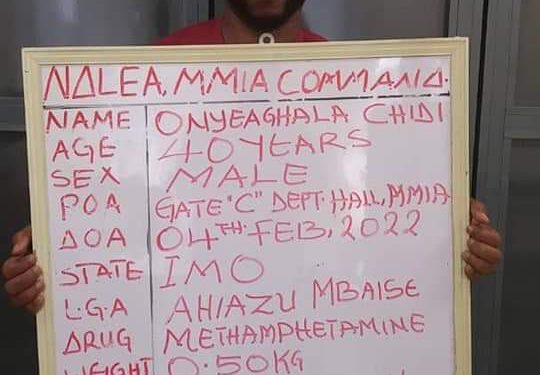 NDLEA, MMIA COMMAND.
NAME ONYEAGHALA CHIDI
AGE 40 YEARS
SEX MALE
POA GATE "C" DEPT. HALL, MMIA
DOA 04TH. FEB, 2022
STATE IMO
L.G.A AHIAZU MBAISE
DRUG METHAMPHETAMINE
WEIGHT 0.50KG